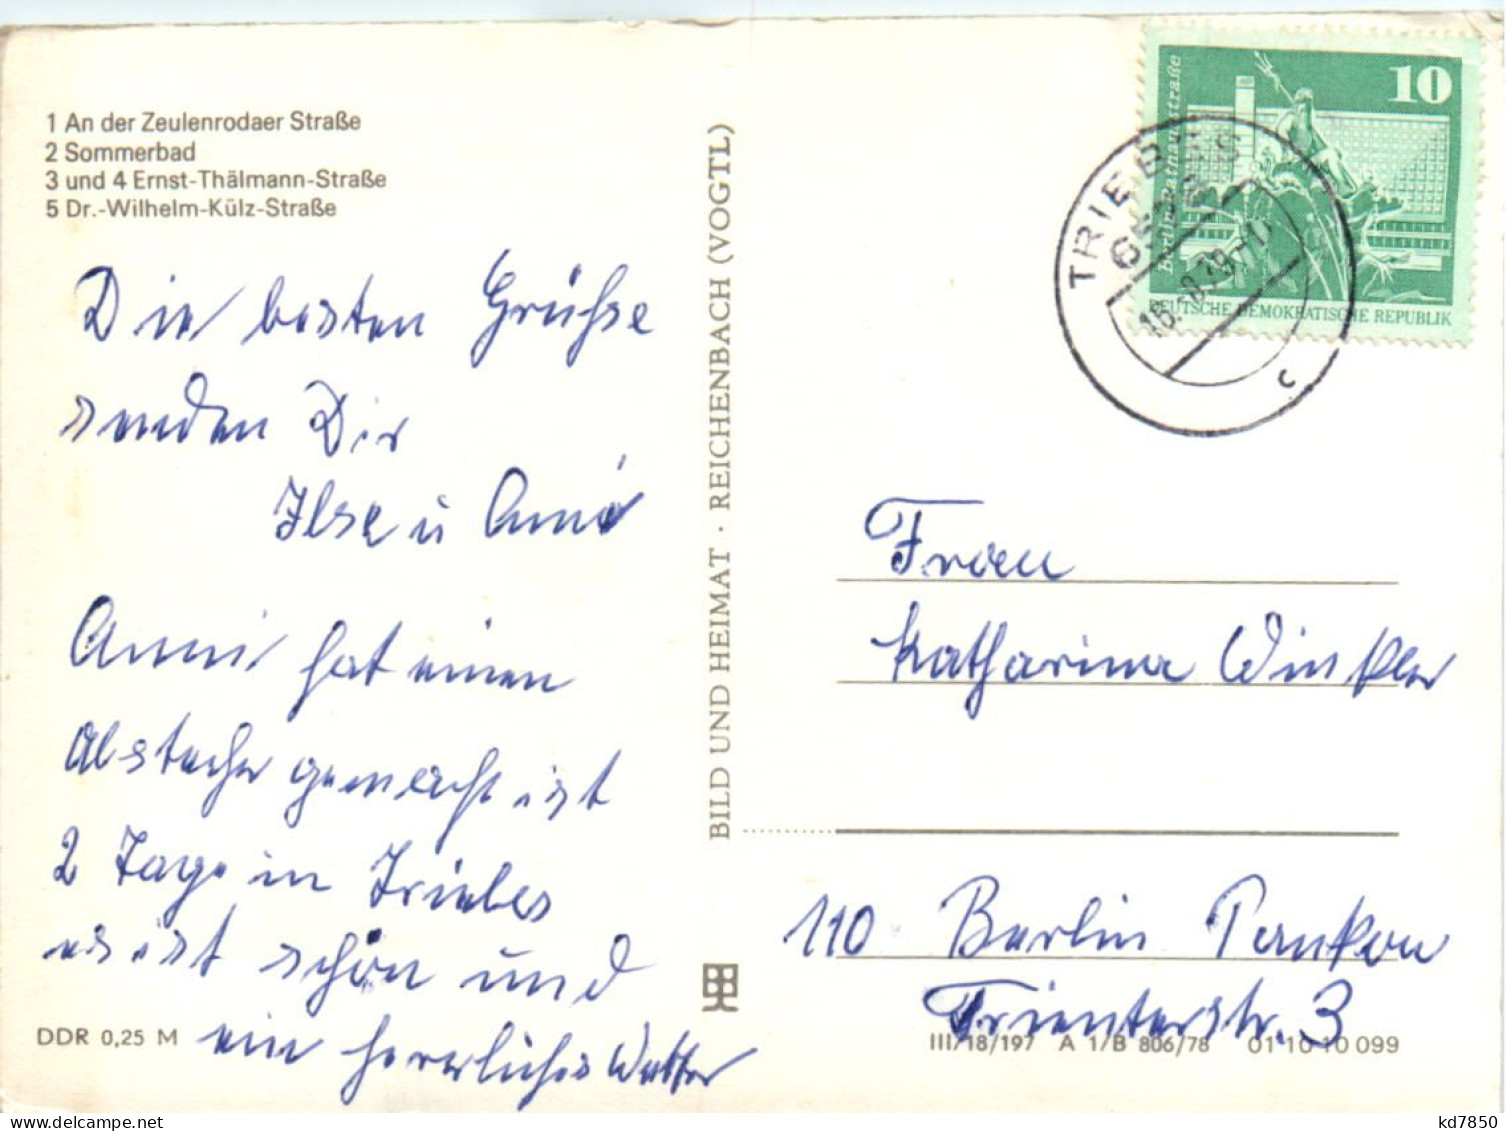 1 An der Zeulenrodaer Straße
2 Sommerbad
3 und 4 Ernst-Thälmann-Straße
5 Dr.-Wilhelm-Külz-Straße
Die besten Grüße
senden Dir
Ilse u Anni
Anni hat einen
Abstecher gemacht ist
2 Tage in Triebes
es ist schön und
ein herrliches Wetter
DDR 0,25 M
BILD UND HEIMAT · REICHENBACH (VOGTL)
10
Berlin, Rathausstraße
DEUTSCHE DEMOKRATISCHE REPUBLIK
TRIEBES
c
Frau
Katharina Winkler
110 Berlin Pankow
Trienterstr. 3
III/18/197 A 1/B 806/78 01 10 10 099
kd7850